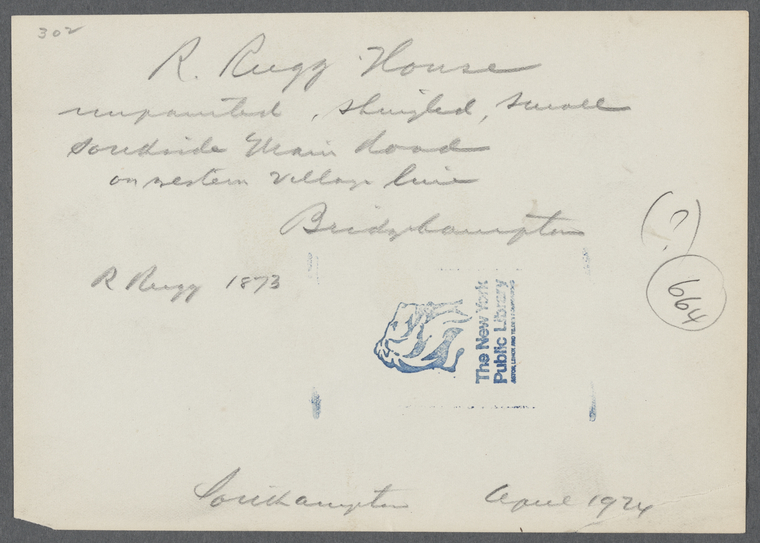 302
R. Rugg House
unpainted, shingled, small
Southside Main Road
on western village line
Bridgehampton
R Rugg 1873
(?)
664
The New York
Public Library
ASTOR, LENOX AND TILDEN FOUNDATIONS
Southampton April 1924